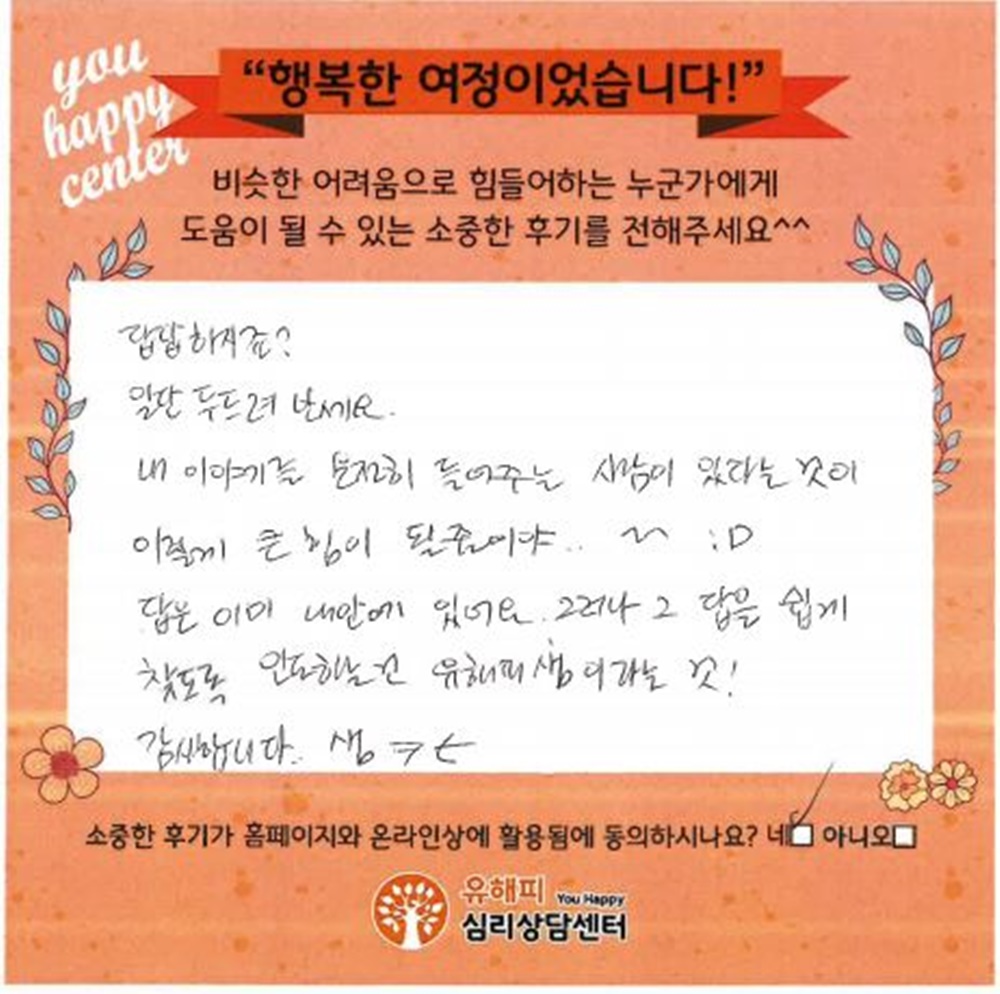 you
happy
center
“행복한 여정이었습니다!”
비슷한 어려움으로 힘들어하는 누군가에게
도움이 될 수 있는 소중한 후기를 전해주세요^^
답답하시죠?
일단 두드려 보세요.
내 이야기를 온전히 들어주는 사람이 있다는 것이
이렇게 큰 힘이 될줄이야.. ~ :D
답은 이미 내안에 있어요. 그러나 그 답을 쉽게
찾도록 인도하는건 유해피 샘이라는 것!
감사합니다. 샘
소중한 후기가 홈페이지와 온라인상에 활용됨에 동의하시나요? 네 아니오
유해피 You Happy
심리상담센터